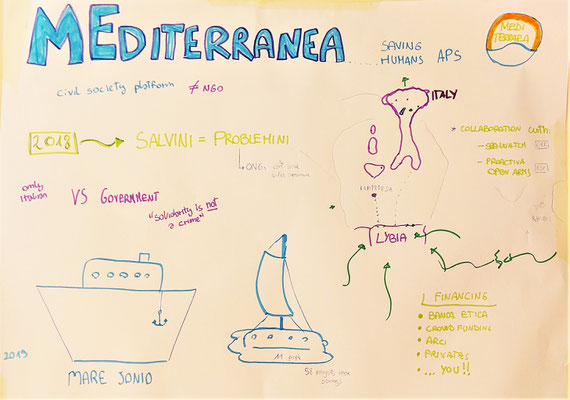 MEDITERRANEA
SAVING
HUMANS APS
MEDI
TERRANEA
civil society platform ≠ NGO
ITALY
2018 → SALVINI = PROBLEMINI
ONG:
* COLLABORATION with:
- SEA WATCH
- PROACTIVA
OPEN ARMS
only
Italian
VS GOVERNMENT
"solidarity is not
a crime"
LAMPEDUSA
LYBIA
FINANCING
• BANCA ETICA
• CROWD FUNDING
• ARCI
• PRIVATES
• ... YOU!!
2019
MARE JONIO
11